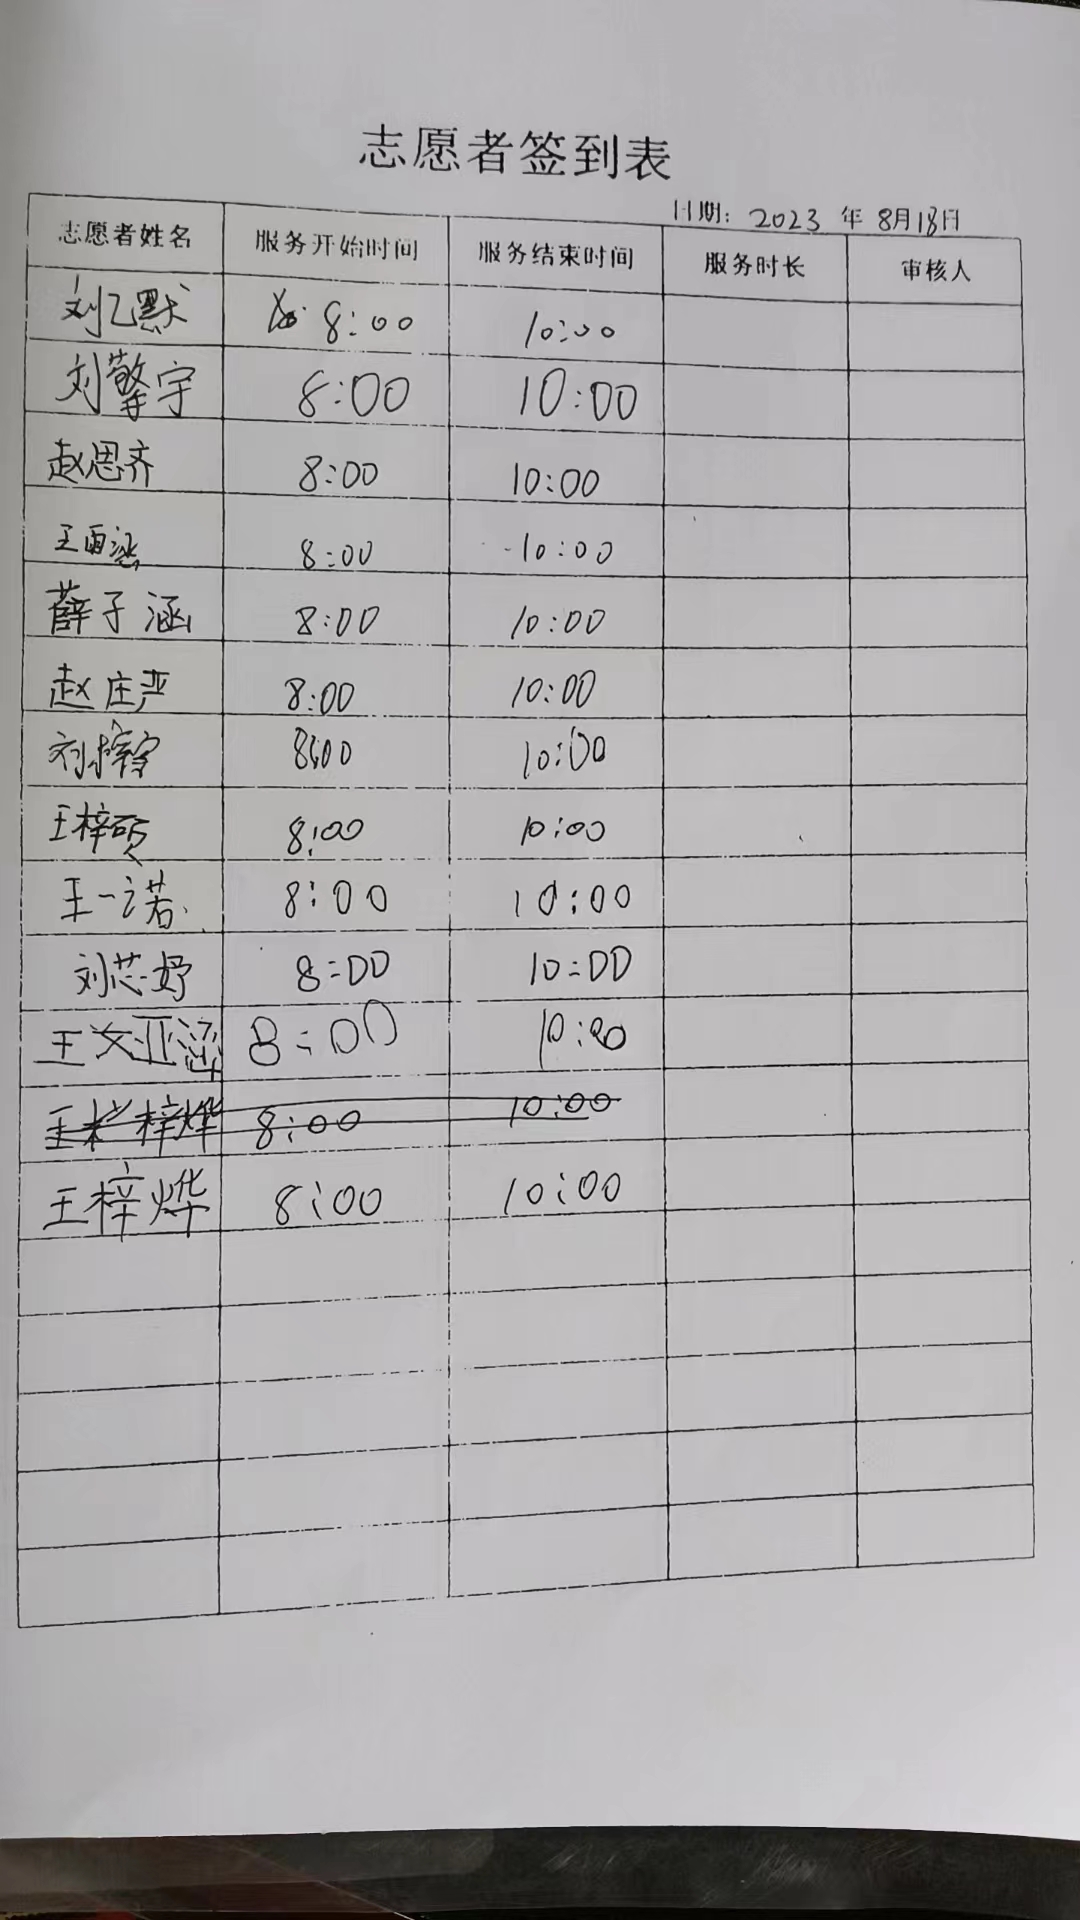 志愿者签到表
日期: 2023 年 8月18日
志愿者姓名 服务开始时间 服务结束时间 服务时长 审核人
刘乙默 8:00 10:00
刘擎宇 8:00 10:00
赵思齐 8:00 10:00
王雨涵 8:00 10:00
薛子涵 8:00 10:00
赵庄严 8:00 10:00
刘梓宁 8:00 10:00
王梓硕 8:00 10:00
王一诺 8:00 10:00
刘芯妤 8:00 10:00
王亚涵 8:00 10:00
王梓烨 8:00 10:00
王梓烨 8:00 10:00